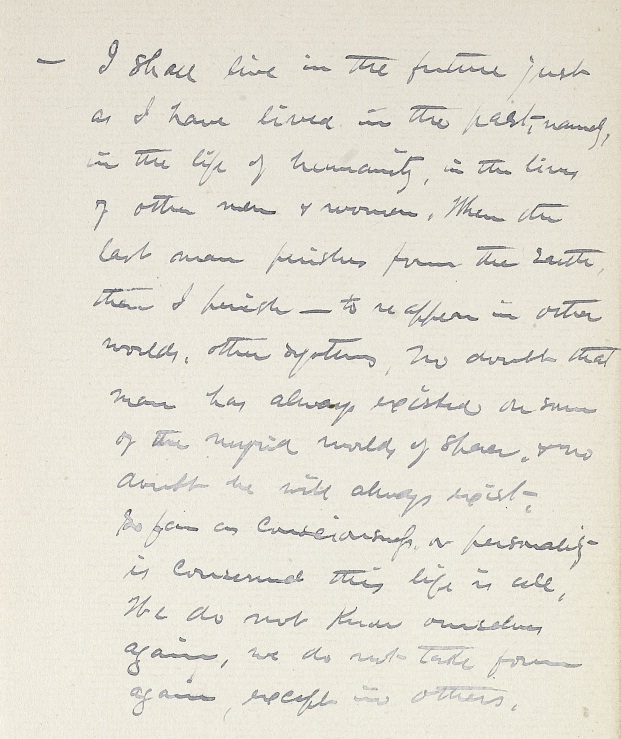 — I shall live in the future just
as I have lived in the past, namely,
in the life of humanity, in the lives
of other men & women. When the
last man perishes from the Earth,
then I perish — to reappear in other
worlds, other systems, No doubt that
man has always existed on some
of the myriad worlds of space, & no
doubt he will always exist.
So far as consciousness or personality
is concerned this life is all,
We do not know ourselves
again, we do not take form
again, except in others.